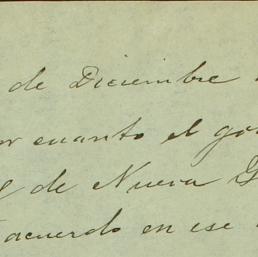 de Diciembre
cuanto el
de Nueva
acuerdo en ese